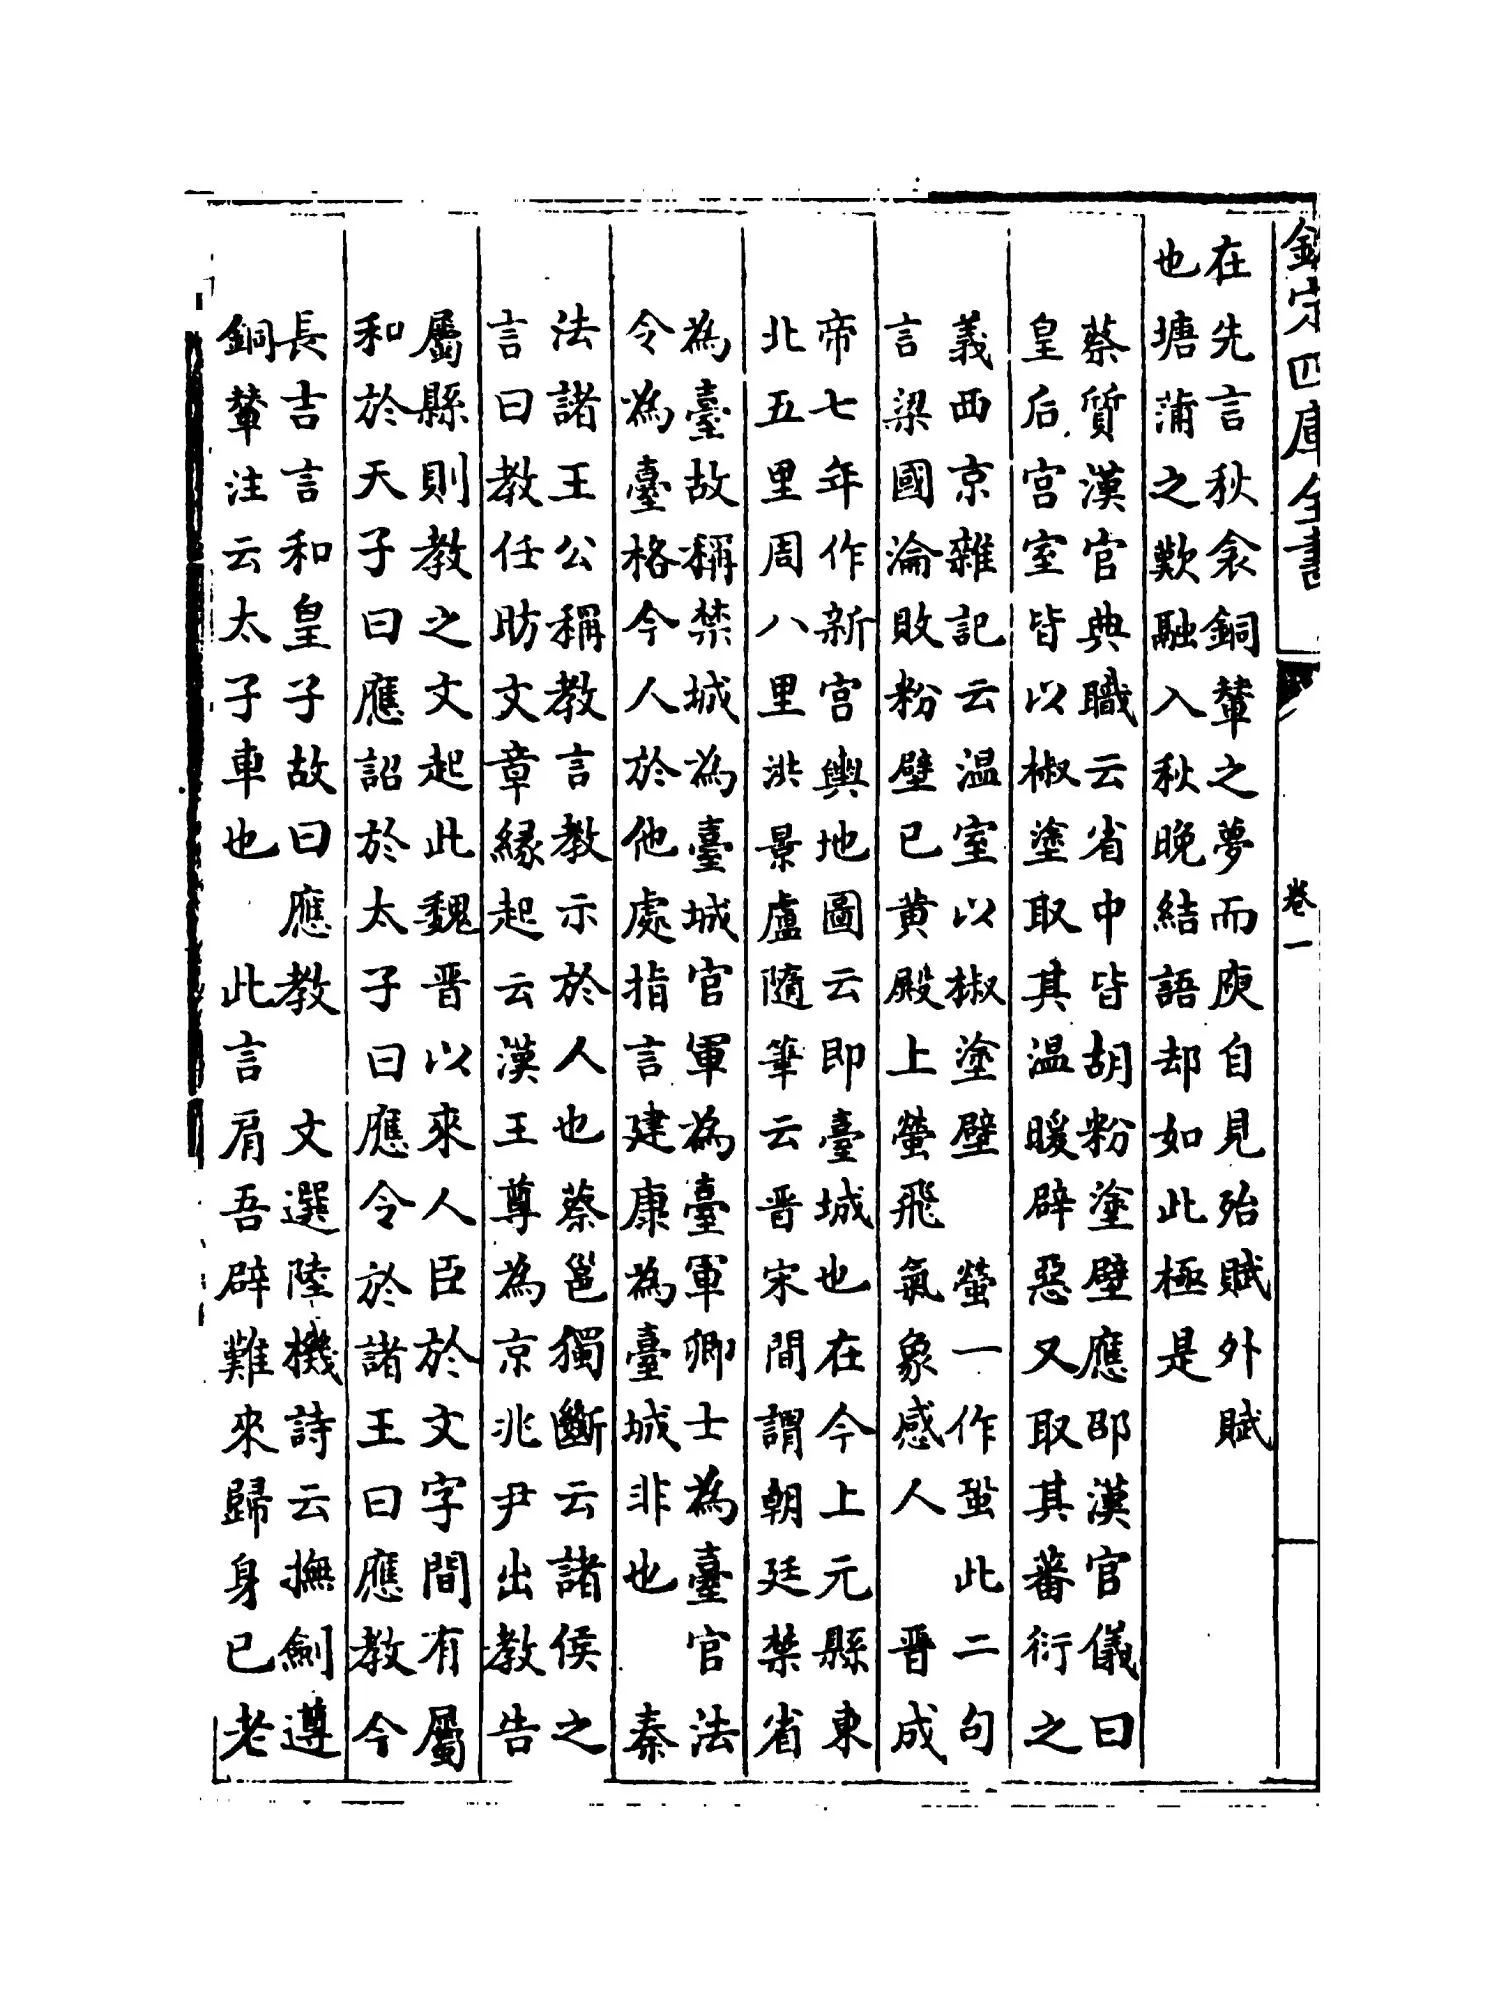 欽定四庫全書
卷一
在先言秋衾銅輦之夢而庾自見殆賦外賦
也塘蒲之歎融入秋晚結語却如此極是
蔡質漢官典職云省中皆胡粉塗壁應邵漢官儀曰
皇后宫室皆以椒塗取其温暖辟惡又取其蕃衍之
義西京雜記云温室以椒塗壁　螢一作蛩此二句
言梁國淪敗粉壁已黄殿上螢飛氣象感人　晋成
帝七年作新宫輿地圖云即臺城也在今上元縣東
北五里周八里洪景盧隨筆云晋宋間謂朝廷禁省
為臺故稱禁城為臺城官軍為臺軍卿士為臺官法
令為臺格今人於他處指言建康為臺城非也　秦
法諸王公稱教言教示於人也蔡邕獨斷云諸侯之
言曰教任昉文章縁起云漢王尊為京兆尹出教告
屬縣則教之文起此魏晋以來人臣於文字間有屬
和於天子曰應詔於太子曰應令於諸王曰應教今
長吉言和皇子故曰應教　文選陸機詩云撫劍遵
銅輦注云太子車也　此言肩吾辟難來歸身已老